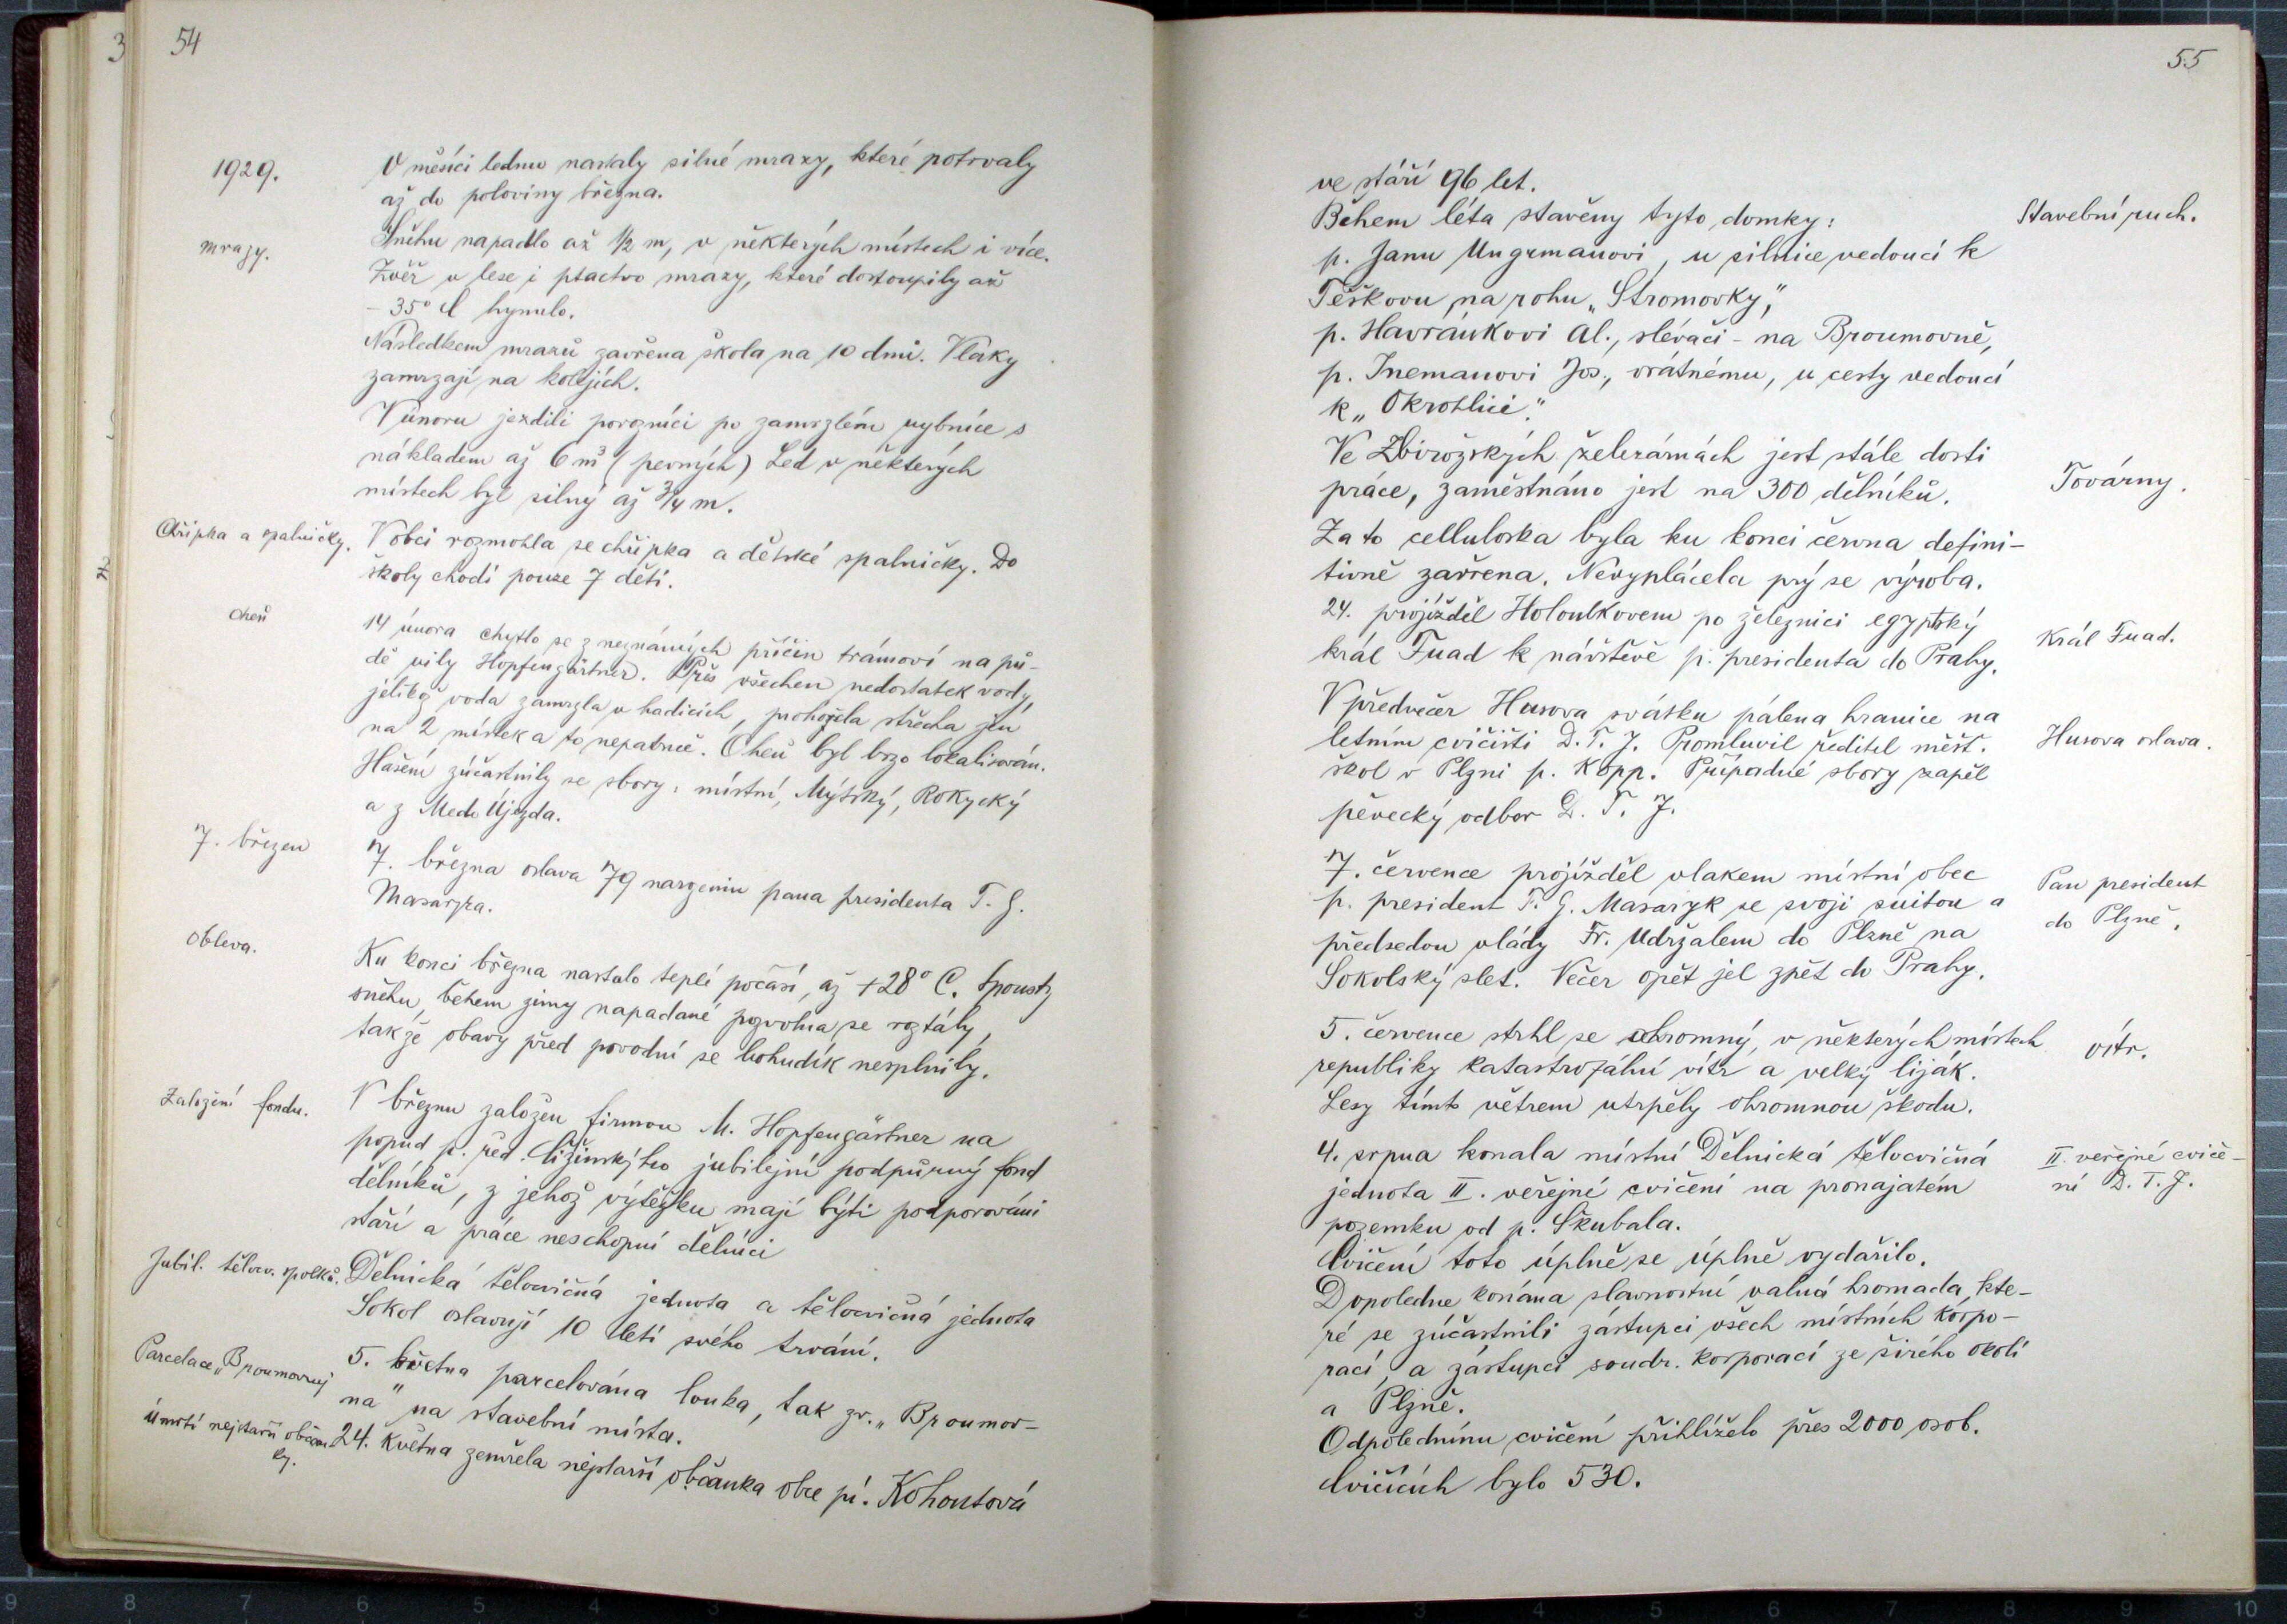 54
1929.
V měsíci lednu nastaly silné mrazy, které potrvaly
až do poloviny března.
mrazy.
Sněhu napadlo až 1/2 m, v některých místech i více.
Zvěř v lese i ptactvo mrazy, které dostoupily až
- 35° C hynulo.
Následkem mrazů zavřena škola na 10 dnů. Vlaky
zamrzají na kolejích.
V únoru jezdili porozníci po zamrzlém rybníce s
nákladem až 6 m³ (pevných) Led v některých
místech byl silný až 3/4 m.
Chřipka a spalničky.
V obci rozmohla se chřipka a dětské spalničky. Do
školy chodí pouze 7 dětí.
Oheň
14 února chytlo se z neznámých příčin trámoví na pů-
dě vily Hopfengärtner. Přes všechen nedostatek vody,
jelikož voda zamrzla v hadicích, prohořela střecha jen
na 2 místek a to nepatrně. Oheň byl brzo lokalisován.
Hašení zúčastnily se sbory: místní, Mýtský, Rokycký
a z Medo Újezda.
7. březen
7. března oslava 79 narozenin pana presidenta T. G.
Masaryka.
Obleva.
Ku konci března nastalo teplé počasí, až +28° C. Spousty
sněhu, během zimy napadané pozvolna se roztály,
takže obavy před povodní se bohudík nesplnily.
Založení fondu.
V březnu založen firmou M. Hopfengärtner na
popud p. řed. Cižinského jubilejní podpůrný fond
dělníků, z jehož výtěžku mají býti podporováni
staří a práce neschopní dělníci
Jubil. tělocv. spolků.
Dělnická tělocvičná jednota a tělocvičná jednota
Sokol oslavují 10 letí svého trvání.
Parcelace „Broumovny
5. května parcelována louka, tak zv. „Broumov-
na" na stavební místa.
Úmrtí nejstarší občan
ky.
24. května zemřela nejstarší občanka obce pí. Kohoutová
55
ve stáří 96 let.
Během léta stavěny tyto domky:
Stavební ruch.
p. Janu Ungrmanovi, u silnice vedoucí k
Těškovu na rohu „Stromovky,"
p. Havránkovi Al., slévači - na Broumovně,
p. Inemanovi Jos., vrátnému, u cesty vedoucí
k „Okrohlici".
Ve Zbirožských železárnách jest stále dosti
práce, zaměstnáno jest na 300 dělníků.
Továrny.
Za to celluloska byla ku konci června defini-
tivně zavřena. Nevyplácela prý se výroba.
24. projížděl Holoubkovem po železnici egyptský
král Fuad k návštěvě p. presidenta do Prahy.
Král Fuad.
V předvečer Husova svátku pálena hranice na
letním cvičišti D. T. J. Promluvil ředitel měšť.
Husova oslava.
škol v Plzni p. Kopp. Případné sbory zapěl
pěvecký odbor D. T. J.
7. července projížděl vlakem místní obec
Pan president
p. president T. G. Masaryk se svojí suitou a
předsedou vlády Fr. Udržalem do Plzně na
do Plzně.
Sokolský slet. Večer opět jel zpět do Prahy.
5. července strhl se ohromný, v některých místech
vítr.
republiky katastrofální vítr a velký liják.
Lesy tímto větrem utrpěly ohromnou škodu.
4. srpna konala místní Dělnická tělocvičná
II. veřejné cviče-
jednota II. veřejné cvičení na pronajatém
ní D. T. J.
pozemku od p. Škubala.
Cvičení toto úplně se úplně vydařilo.
Dopoledne konána slavnostní valná hromada, kte-
ré se zúčastnili zástupci všech místních korpo-
rací, a zástupci soudr. korporací ze širého okolí
a Plzně.
Odpolednímu cvičení přihlíželo přes 2000 osob.
Cvičících bylo 530.